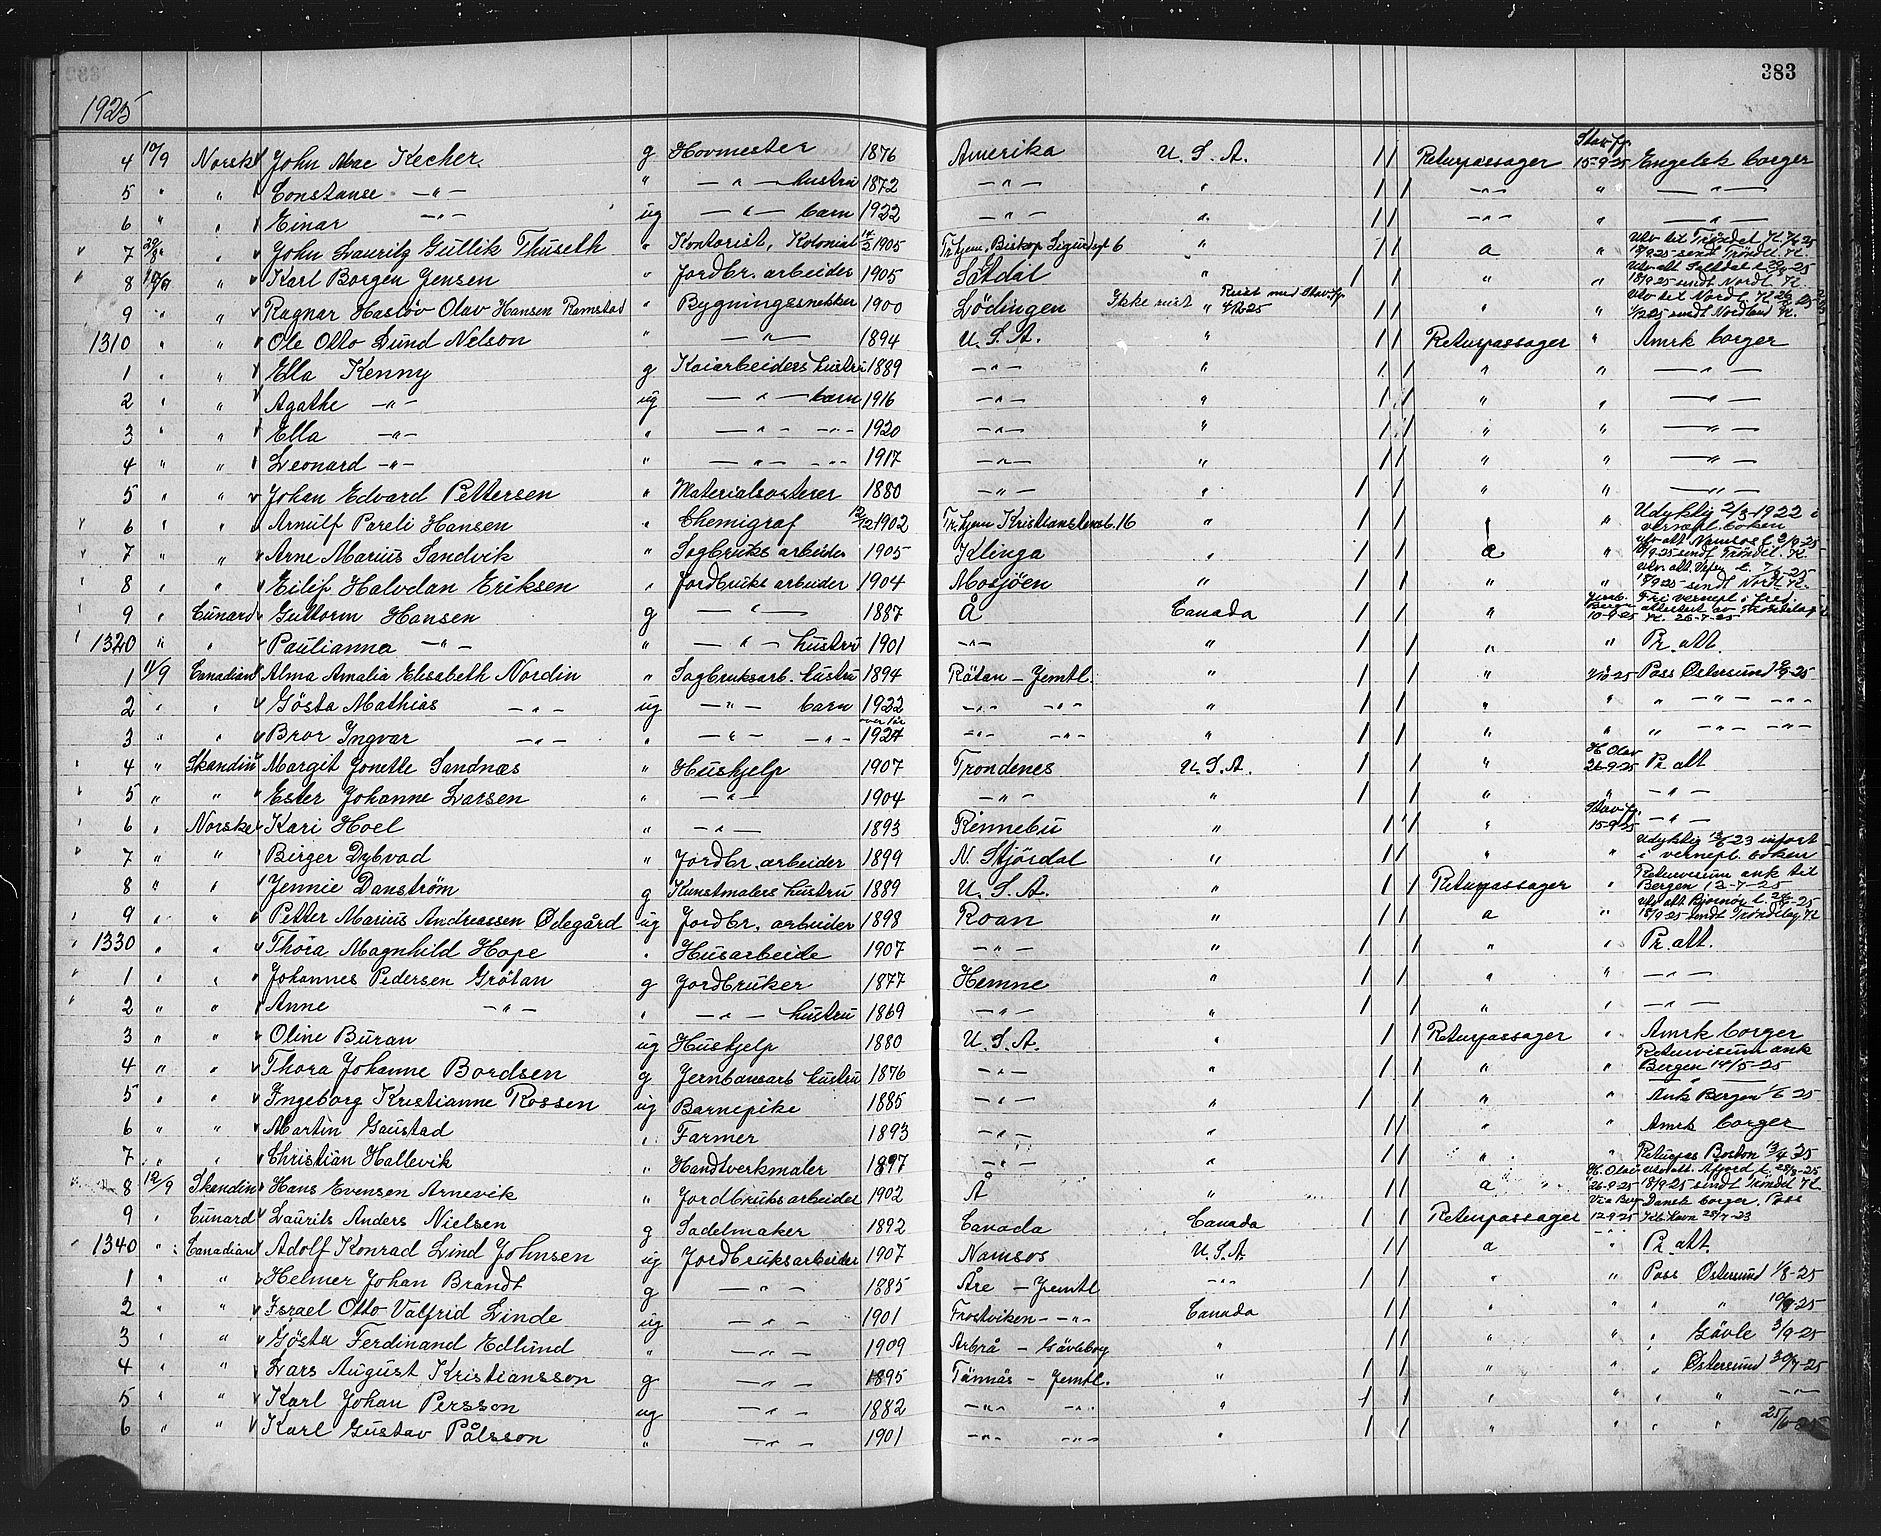 383
1925
4 10/9 Norsk John Mac Kecher g Hovmester 1876 Amerika U.S.A. / / Returpassager Stav.fj. 15-9-25 Engelsk borger
5 " " Constanse -"- " -"- hustru 1872 -"- " / / -"- " -"-
6 " " Einar -"- ug -"- barn 1922 -"- " / / -"- " -"-
7 " John Lauritz Gullik Thuseth " Kontorist, Kolonial 1905 Tr.hjem, Biskop Sigurdsgt 6 " / / a 18/9 25 sendt Trøndel. K.
8 " Karl Borgen Jensen " Jordbr. arbeider 1905 Saltdal " / / " " 18/9 25 sendt Nordl. K.
9 " " Ragnar Hasløv Olav Hansen Ramstad " Bygningssnekker 1900 Lödingen Ikke reist " Reist med Stav.fj. / / " " sendt Nordland K.
1310 " " Ole Otto Lund Nelson " -"- 1894 U.S.A. " / / Returpassager " Amrk borger
1 " " Ella Kenny g Kaiarbeiders hustru 1889 -"- " / / " " -"-
2 " " Agathe -"- ug -"- barn 1916 -"- " / / " " -"-
3 " " Ella -"- " -"- -"- 1920 -"- " / / " " -"-
4 " " Leonard -"- " -"- -"- 1917 -"- " / / " " -"-
5 " " Johan Edvard Pettersen " 1880 -"- " / / " " -"-
6 " " Arnulf Pareli Hansen " Chemigraf 12/12 1902 Tr.hjem Kristianstensb. 16 " / / " Udyktig 2/3-1922 i vernepl. boken
7 " " Arne Marius Sandvik " Sagbruks arbeider 1905 Klinga " / / a " utv. att. Namsos 18/9-25 sendt Tröndl. K.
8 " " Eilif Halvdan Eriksen " Jordbruks arbeider 1904 Mosjöen " / / " " utv. att. Vefsn t. 7/6-25 18/9 25 sendt Nordl. K.
9 " Cunard Guttorm Hansen g -"- 1887 Å Canada / / " Jernb. Bergen 10-9-25 Fri vernepl. i fred. attestert av Trøndelag K. 26-7-25
1320 " " Paulianna -"- " -"- hustru 1901 -"- " / / " " Pr. att.
1 11/9 Canadian Alma Amalia Elisabeth Nordin " Sagbruksarb. hustru 1894 Rätan - Jemtl. " / / " Pass Östersund
2 " " Gösta Mathias -"- ug -"- barn 1922 -"- -"- " / / " " " -"- -"-
3 " " Bror Ingvar -"- " -"- -"- over 1 år 1924 -"- -"- " / / " " " -"- -"-
4 " Skandin Margit Jonette Sandnæs " Hushjelp 1907 Trondenes U.S.A. / / " H. Olav 26-9-25 Pr. att
5 " " Ester Johanne Larsen " -"- 1904 -"- " / / " " -"-
6 " Norske Kari Hoel " -"- 1893 Rennebu " / / " Stav.fj. 15-9-25 -"-
7 " " Birger Dybvad " Jordbr. arbeider 1899 N. Stjördal " / / " " Udyktig 23 infört i vernepl. boken
8 " " Jennie Danström g Kunstmalers hustru 1889 U.S.A. " / / Returpassager " Returvisum ank til Bergen 12-7-25
9 " " Petter Marius Andreassen Ødegård ug Jordbr. arbeider 1898 Roan " / / a " utv. att Bjørnör 18/9-25 sendt Tröndelag K
1330 " " Thora Magnhild Hope " Husarbeide 1907 -"- " / / " " Pr. att.
1 " " Johannes Pedersen Grötan g Jordbruker 1877 Hemne " / / " " -"-
2 " " Anne -"- " -"- hustru 1869 -"- " / / " " -"-
3 " " Oline Buran ug Hushjelp 1880 U.S.A. " / / Returpassager " Amrk borger
4 " " Thora Johanne Bordsen g Jernbanearb hustru 1876 -"- " / / " " Returvisum ank Bergen 14/5-25
5 " " Ingeborg Kristianne Rossen ug Barnepike 1885 -"- " / / " " Ank Bergen 1/6 25
6 " " Martin Gaustad " Farmer 1893 -"- " / / " " Amrk borger
7 " " Christian Hallevik " Handtverkmaler 1897 -"- " / / " " Returpas Boston
8 12/9 Skandin Hans Evensen Arnevik " Jordbruksarbeider 1902 Å " / / a " H. Olav 26-9-25 utv. att. Afjord 18/9-25 sendt Tröndel K.
9 " Cunard Laurits Anders Nielsen g Sadelmaker 1892 Canada Canada / / Returpassager Via Berg 12-9-25 Dansk borger, Pass Kb.havn 28/7-23
1340 " Canadian Adolf Konrad Lind Johnsen ug Jordbruksarbeider 1907 Namsos U.S.A / / a " Pr. att.
1 " " Helmer Johan Brandt g -"- 1885 Åre - Jemtl -"- / / " " Pass Östersund 1/8-25
2 " " Israel Otto Valfrid Linde ug -"- 1901 Frostviken -"- Canada / / " " " " -25
3 " " Gösta Ferdinand Edlund " -"- 1909 Arbrå - Gävleborg " / / " " " Gävle 3/9-25
4 " " Lars August Kristiansson g -"- 1895 Tännäs - Jemtl. " / / " " " Östersund 30/7-25
5 " " Karl Johan Persson ug -"- 1882 -"- -"- " / / " " " " -"-
6 " " Karl Gustav Pålsson " -"- 1901 -"- -"- " / / " " " "